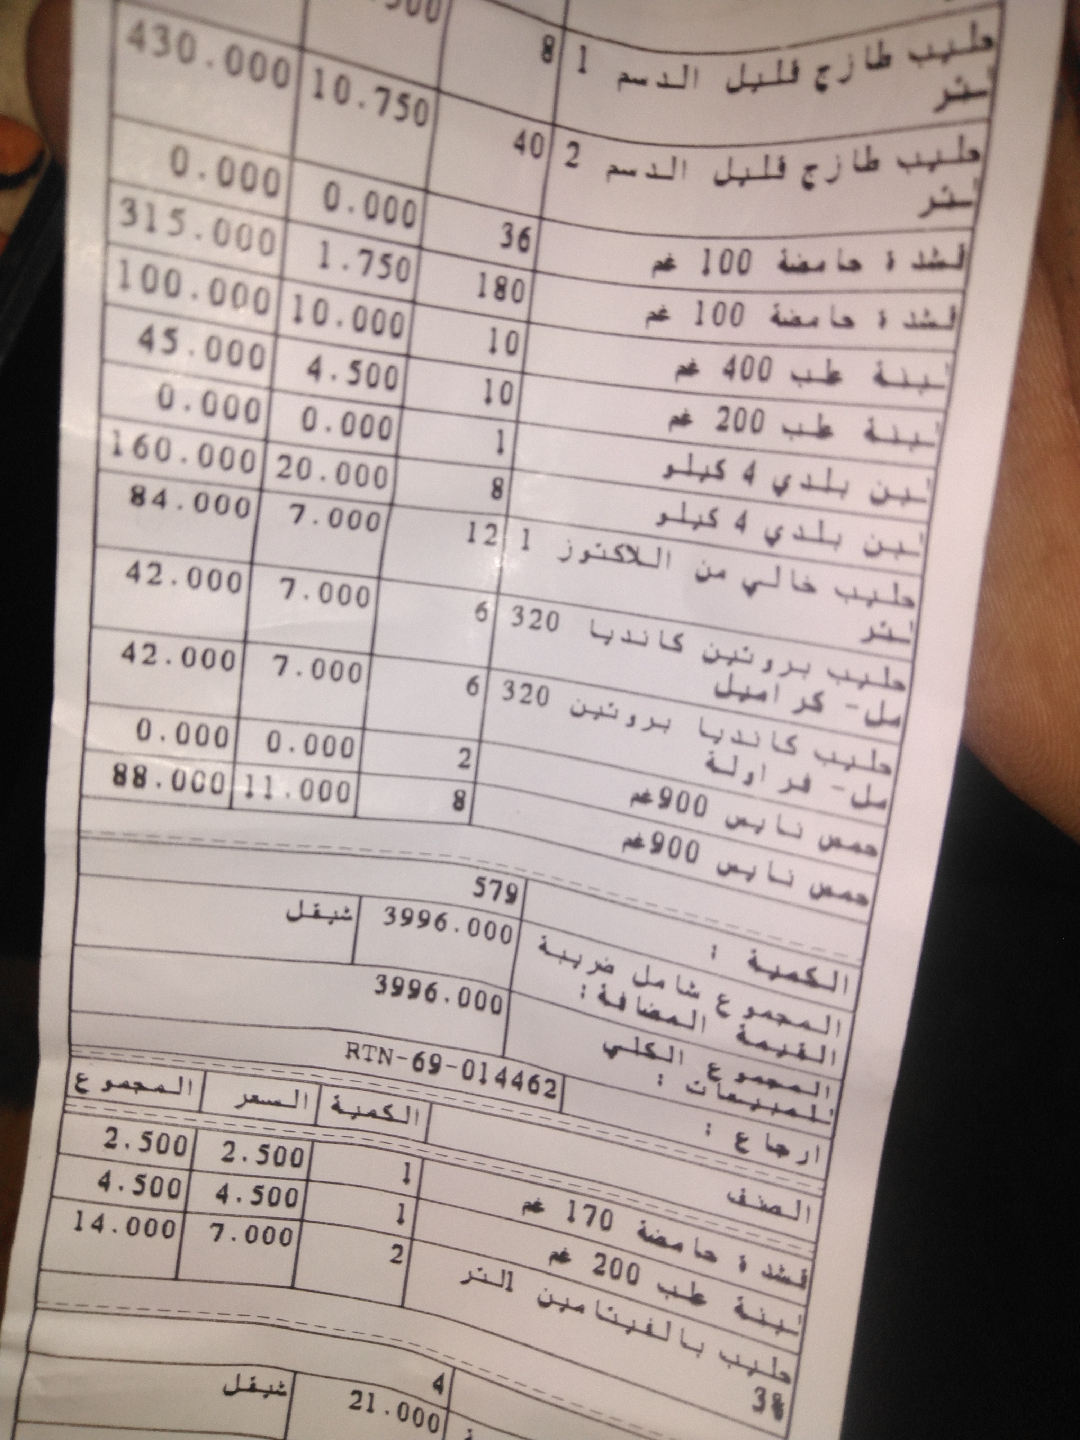 حليب طازج قليل الدسم 1 8
لتر
حليب طازج قليل الدسم 2 40 10.750 430.000
لتر
قشدة حامضة 100 غم 36 0.000 0.000
قشدة حامضة 100 غم 180 1.750 315.000
لبنة طب 400 غم 10 10.000 100.000
لبنة طب 200 غم 10 4.500 45.000
لبن بلدي 4 كيلو 1 0.000 0.000
لبن بلدي 4 كيلو 8 20.000 160.000
حليب خالي من اللاكتوز 1 12 7.000 84.000
لتر
حليب بروتين كانديا 320 6 7.000 42.000
مل- كراميل
حليب كانديا بروتين 320 6 7.000 42.000
مل- فراولة
حمص نايس 900غم 2 0.000 0.000
حمص نايس 900غم 8 11.000 88.000
الكمية : 579
المجموع شامل ضريبة 3996.000 شيقل
القيمة المضافة:
المجموع الكلي 3996.000
للمبيعات :
ارجاع : RTN-69-014462
الصنف الكمية السعر المجموع
قشدة حامضة 170 غم 1 2.500 2.500
لبنة طب 200 غم 1 4.500 4.500
حليب بالفيتامين 1لتر 2 7.000 14.000
3%
4
21.000 شيقل